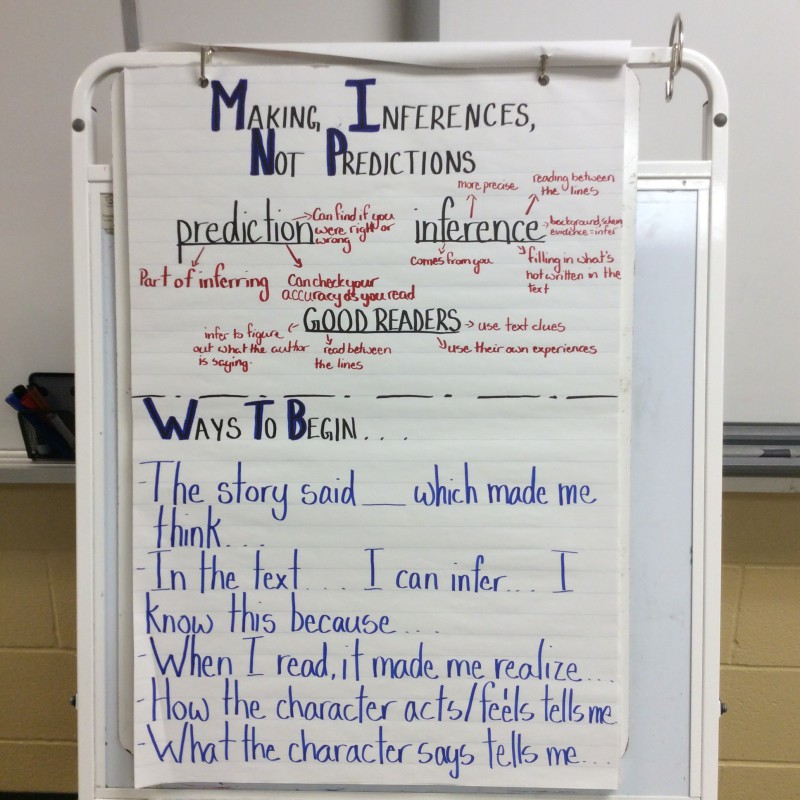 MAKING INFERENCES,
NOT PREDICTIONS
prediction
Can find if you
were right or
wrong
Part of inferring
Can check your
accuracy as you read
inference
more precise
reading between
the lines
background,
evidence = infer
comes from you
filling in what's
not written in the
text
GOOD READERS
use text clues
infer to figure
out what the author
is saying.
read between
the lines
use their own experiences
WAYS TO BEGIN....
-The story said ___ which made me
think....
-In the text.... I can infer.... I
know this because....
-When I read, it made me realize....
-How the character acts/feels tells me
-What the character says tells me....